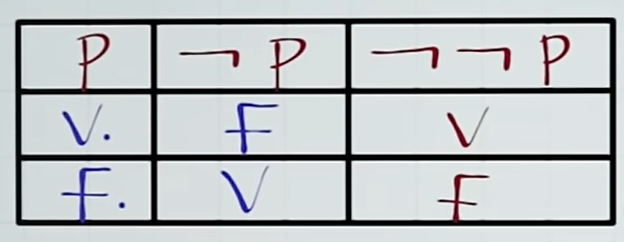 P ¬ P ¬ ¬ P
V. F V
F. V F